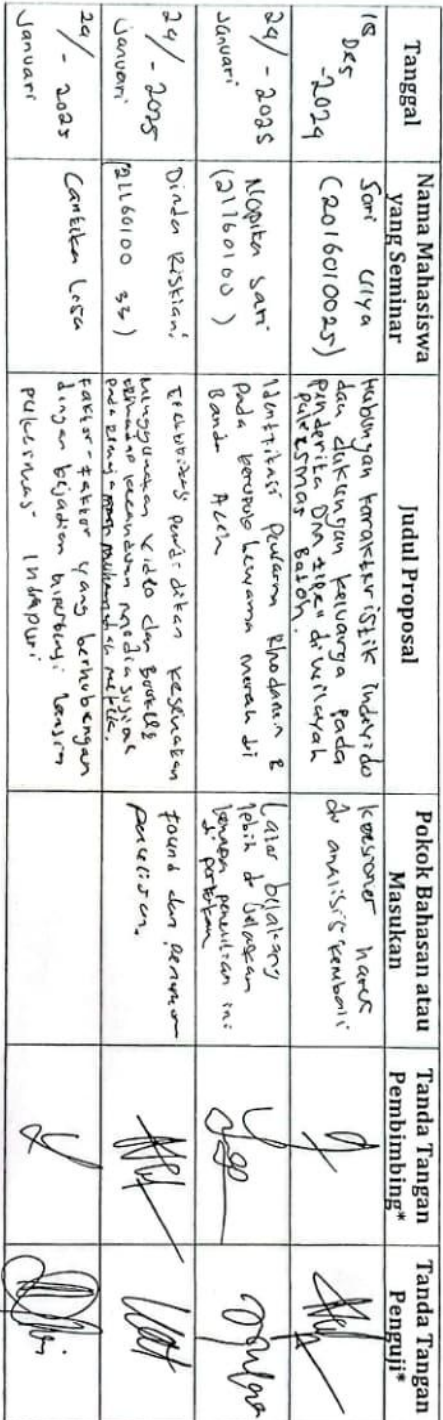 Tanggal
Nama Mahasiswa
yang Seminar
Judul Proposal
Pokok Bahasan atau
Masukan
Tanda Tangan
Pembimbing*
Tanda Tangan
Penguji*
18
Des
-2024
Sari Ulya
(2016010025)
Hubungan karakteristik individo
dan dukungan keluarga pada
penderita DM tipe di wilayah
puskesmas Batoh.
koesioner harus
di analisis kembali
24/ - 2025
Januari
Nopita Sari
(21160100 )
Identifikasi pewarna Rhodamin B
pada merah di
Banda Aceh
Latar belakang
lebih di jelaskan
penelitian ini
24/ - 2025
Januari
Dinda Riskiani
(21160100 33)
pendidikan kesehatan
menggunakan video dan Booklet
media sosial
pada
found dan
24/ - 2025
Januari
Cantika Lisa
Faktor-faktor yang berhubungan
dengan kejadian lansia
puskesmas Indrapuri